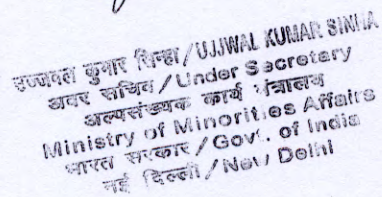 उज्जवल कुमार सिन्हा/UJJWAL KUMAR SINHA
अवर सचिव/Under Secretary
अल्पसंख्यक कार्य मंत्रालय
Ministry of Minorities Affairs
भारत सरकार/Gov. of India
नई दिल्ली/New Delhi